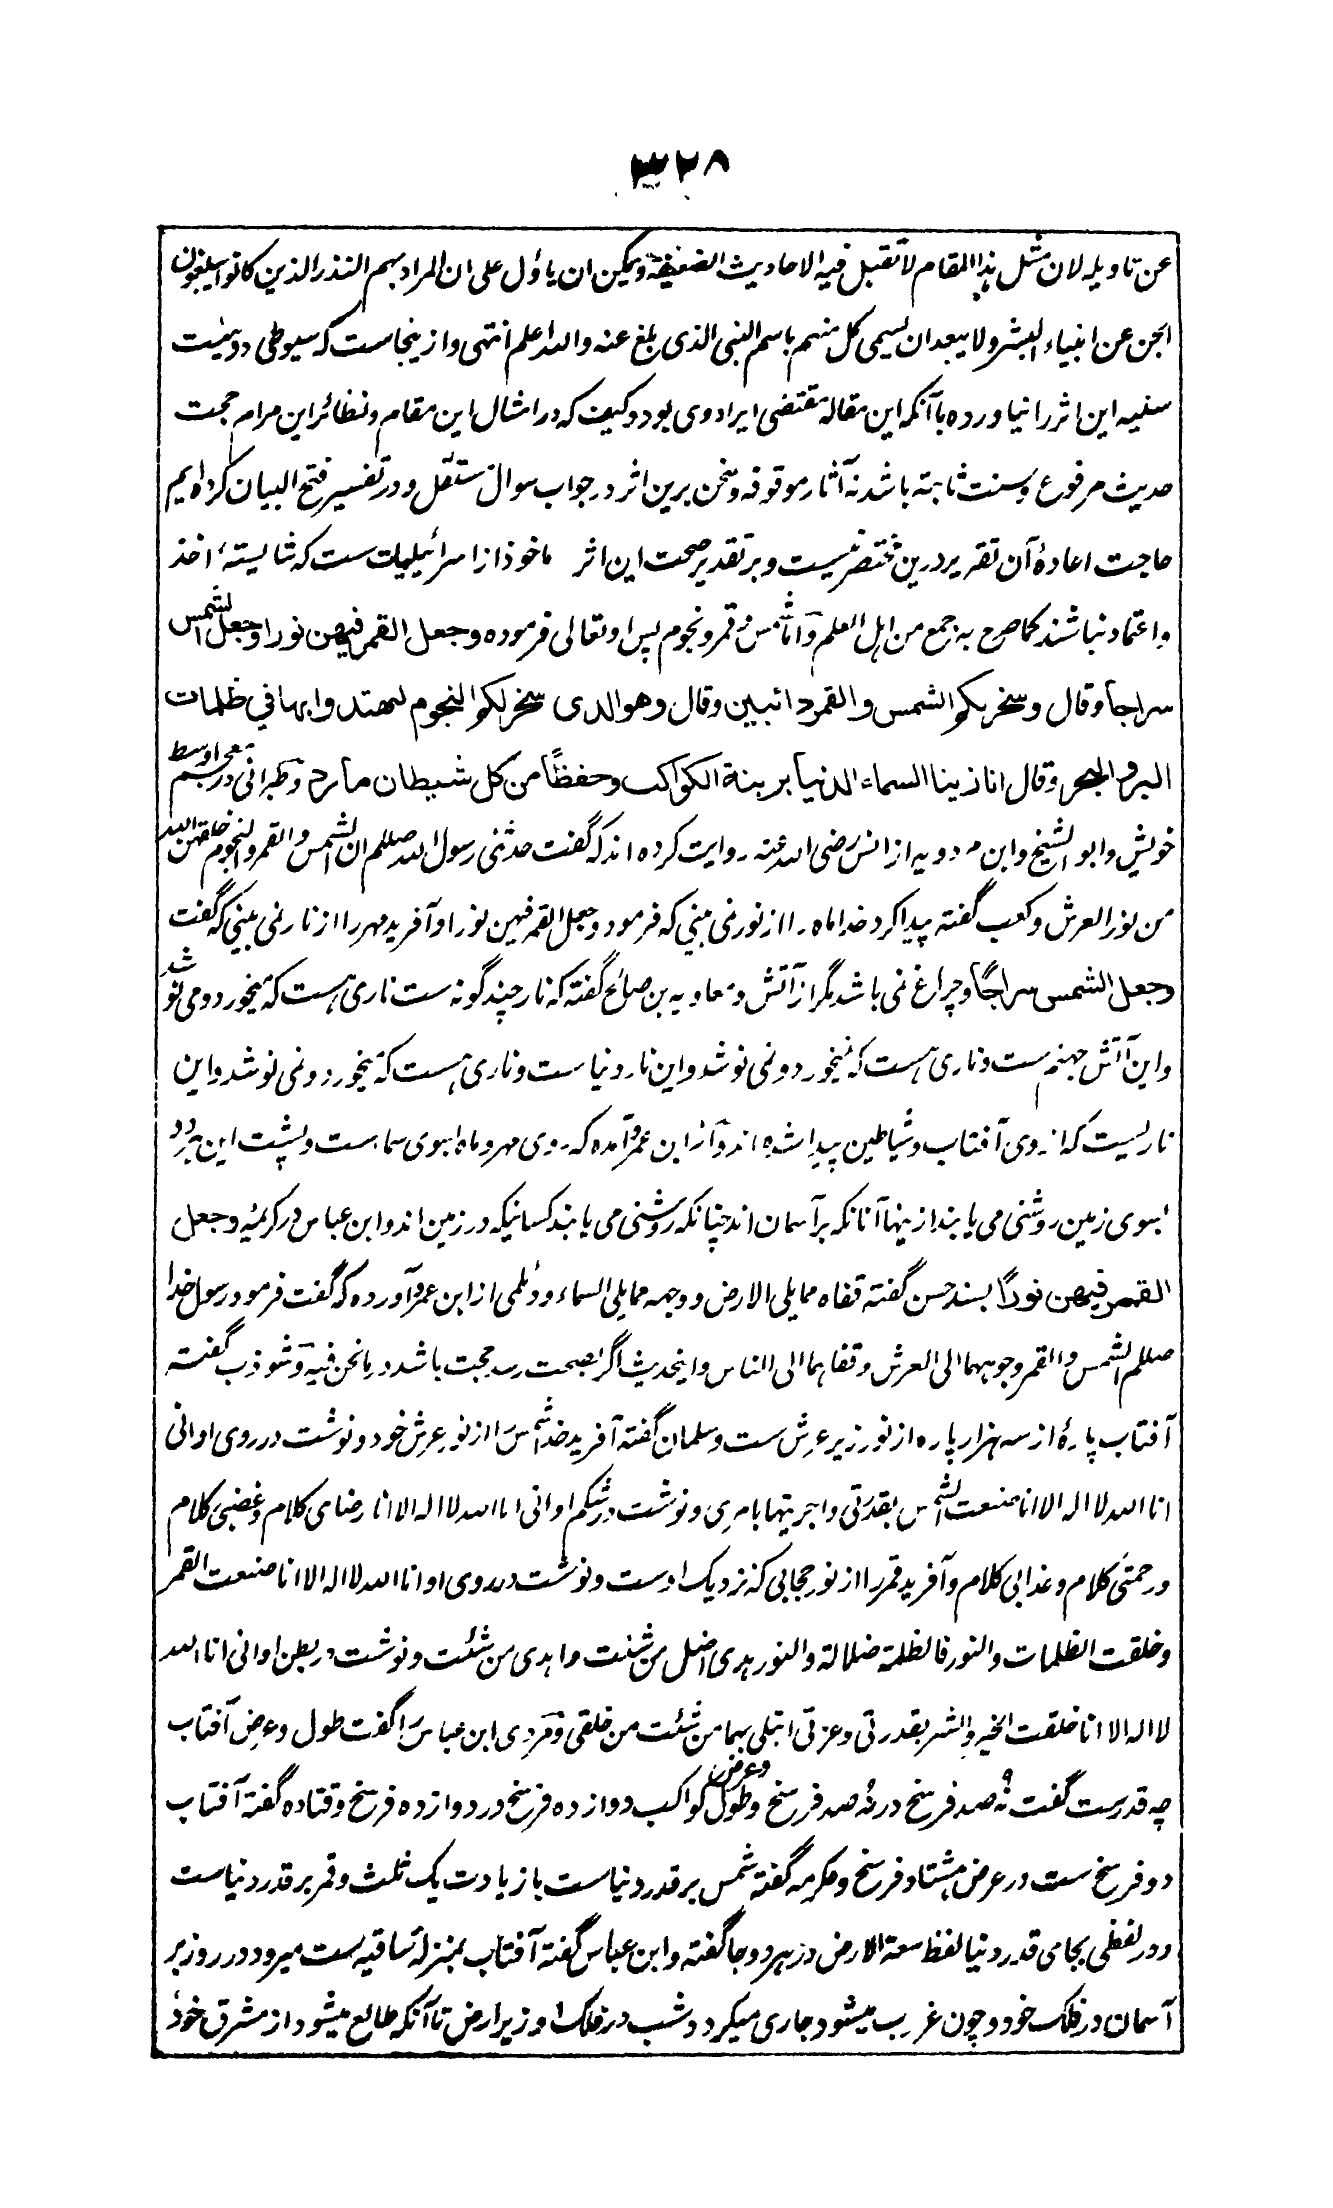 ۳۲۸
عن تاویله لان مثل هذا المقام لا تقبل فیه الاحادیث الضعیفة ویمکن ان یاؤل علی ان المراد بهم النذر الذین کانوا یبلغون
الجن عن انبیاء البشر ولا یبعد ان یسمی کل منهم باسم النبی الذی بلغ عنه والله اعلم انتهی وازینجاست که سیوطی در هیئت
سنیه این اثر را نیاورده باآنکه این مقاله مقتضی ایراد وی بود وکیف که در امثال این مقام ونظائر این مرام حجت
حدیث مرفوع وسنت ثابته باشد نه آثار موقوفه وسخن برین اثر در جواب سوال مستقل ودر تفسیر فتح البیان کرده ایم
حاجت اعادهٔ آن تقریر درین مختصر نیست وبر تقدیر صحت این اثر ماخوذ از اسرائیلیات ست که شایستهٔ اخذ
واعتماد نباشند کما صرح به جمع من اهل العلم واما شمس وقمر ونجوم پس او تعالی فرموده وجعل القمر فیهن نورا وجعل الشمس
سراجا وقال وسخر لکم الشمس والقمر دائبین وقال وهو الذی سخر لکم النجوم لتهتدوا بها فی ظلمات
البر والبحر وقال انا زینا السماء الدنیا بزینة الکواکب وحفظاً من کل شیطان مارد وطبرانی در معجم اوسط
خویش وابو الشیخ وابن مردویه از انس رضی الله عنه روایت کرده اند که گفت حدثنی رسول الله صللم ان الشمس والقمر والنجوم خلقهن الله
من نور العرش وکعب گفته پیدا کرد خدا ماه را از نور نمی بینی که فرمود وجعل القمر فیهن نورا وآفرید مهر را از نار نمی بینی که گفت
وجعل الشمس سراجًا وچراغ نمی باشد مگر از آتش ومعاویه بن صالح گفته که نار چند گونه ست ناری هست که میخورد ومی نوشد
واین آتش جهنم ست وناری هست که نمیخورد ونمی نوشد واین نار دنیا ست وناری هست که میخورد ونمی نوشد واین
ناریست که از وی آفتاب وشیاطین پیدا شده اند واز ابن عمرو آمده که روی مهر وماه بسوی سماست وپشت این هر دو
بسوی زمین روشنی می یابند ازینها آنانکه بر آسمان اند چنانکه روشنی می یابند کسانیکه در زمین اند وابن عباس در کریمه وجعل
القمر فیهن نورًا بسند حسن گفته قفاه مما یلی الارض ووجهه مما یلی السماء ودیلمی از ابن عمرو آورده که گفت فرمود رسول خدا
صللم الشمس والقمر وجوههما الی العرش وقفاهما الی الناس واینحدیث اگر بصحت رسد حجت باشد در ما نحن فیه وشوذب گفته
آفتاب پارهٔ از سه هزار پاره از نور زیر عرش ست وسلمان گفته آفرید خدا شمس را از نور عرش خود ونوشت در روی او انی
انا الله لا اله الا انا صنعت الشمس بقدرتی واجریتها بامری ونوشت در شکم او انی انا الله لا اله الا انا رضای کلام وغضبی کلام
ورحمتی کلام وعذابی کلام وآفرید قمر را از نور حجابی که نزدیک اوست ونوشت در روی او انا الله لا اله الا انا صنعت القمر
وخلقت الظلمات والنور فالظلمة ضلالة والنور هدی اضل من شئت واهدی من شئت ونوشت در بطن او انی انا الله
لا اله الا انا خلقت الخیر والشر بقدرتی وعزتی ابتلی بهما من شئت من خلقی ومردی ابن عباس را گفت طول وعرض آفتاب
چه قدرست گفت نه صد فرسخ در نه صد فرسخ وطول وعرض کواکب دوازده فرسخ در دوازده فرسخ وقتاده گفته آفتاب
دو فرسخ ست در عرض هشتاد فرسخ وعکرمه گفته شمس بر قدر دنیا ست با زیادت یک ثلث وقمر بر قدر دنیا ست
ودر لفظی بجای قدر دنیا لفظ سعة الارض در هر دو جا گفته وابن عباس گفته آفتاب بمنزلهٔ ساقیه ست میرود در روز بر
آسمان در فلک خود وچون غرب میشود جاری میگردد شب در فلک او زیر ارض تا آنکه طالع میشود از مشرق خود